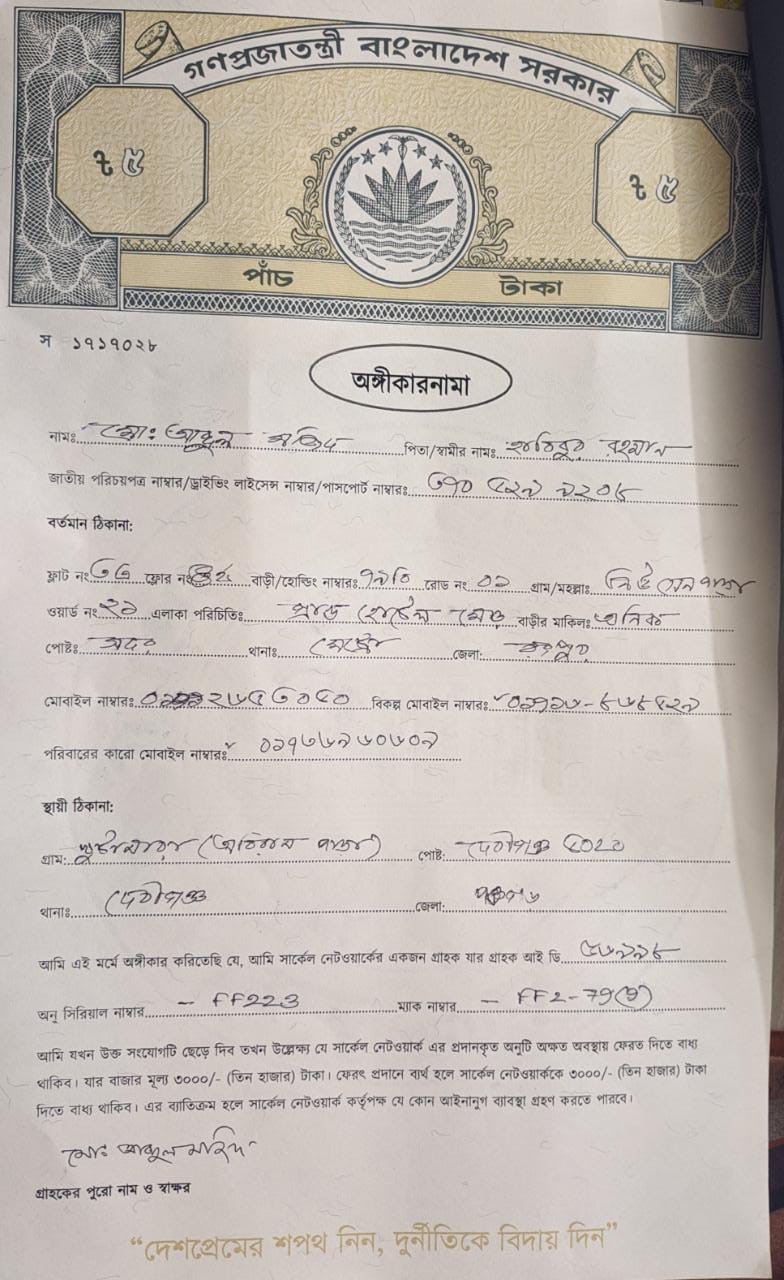 গণপ্রজাতন্ত্রী বাংলাদেশ সরকার
৳ ৫ ৳ ৫
পাঁচ টাকা
স ১৭১৭০২৮
অঙ্গীকারনামা
নামঃ মোঃ আব্দুল মজিদ পিতা/স্বামীর নামঃ রহমান
জাতীয় পরিচয়পত্র নাম্বার/ড্রাইভিং লাইসেন্স নাম্বার/পাসপোর্ট নাম্বারঃ
বর্তমান ঠিকানা:
ফ্লাট নং ফ্লোর নং বাড়ী/হোল্ডিং নাম্বারঃ রোড নং ০১ গ্রাম/মহল্লাঃ
ওয়ার্ড নং ২১ এলাকা পরিচিতিঃ বাড়ীর মালিকঃ
পোষ্টঃ সদর থানাঃ জেলা: রংপুর
মোবাইল নাম্বারঃ বিকল্প মোবাইল নাম্বারঃ
পরিবারের কারো মোবাইল নাম্বারঃ
স্থায়ী ঠিকানা:
গ্রাম: পোষ্ট: দেবীগঞ্জ ৫০২০
থানাঃ দেবীগঞ্জ জেলা: পঞ্চগড়
আমি এই মর্মে অঙ্গীকার করিতেছি যে, আমি সার্কেল নেটওয়ার্কের একজন গ্রাহক যার গ্রাহক আই ডি
অনু সিরিয়াল নাম্বার – FF223 ম্যাক নাম্বার – FF2-79
আমি যখন উক্ত সংযোগটি ছেড়ে দিব তখন উল্লেক্ষ্য যে সার্কেল নেটওয়ার্ক এর প্রদানকৃত অনুটি অক্ষত অবস্থায় ফেরত দিতে বাধ্য
থাকিব। যার বাজার মূল্য ৩০০০/- (তিন হাজার) টাকা। ফেরৎ প্রদানে ব্যর্থ হলে সার্কেল নেটওয়ার্ককে ৩০০০/- (তিন হাজার) টাকা
দিতে বাধ্য থাকিব। এর ব্যতিক্রম হলে সার্কেল নেটওয়ার্ক কর্তৃপক্ষ যে কোন আইনানুগ ব্যবস্থা গ্রহণ করতে পারবে।
মোঃ আব্দুল মজিদ
গ্রাহকের পুরো নাম ও স্বাক্ষর
“দেশপ্রেমের শপথ নিন, দুর্নীতিকে বিদায় দিন”